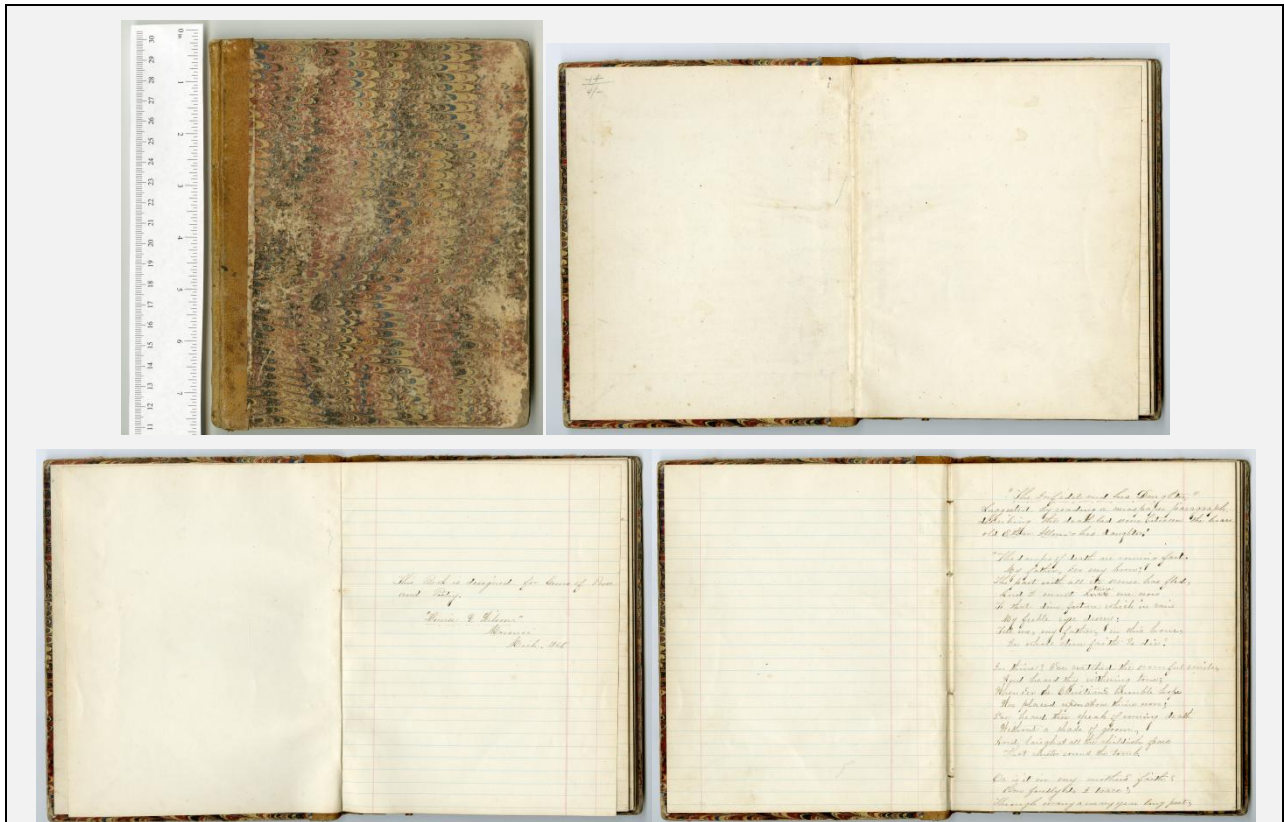 This Book is designed for Gems of Prose
and Poetry.
"The Infidel and his Daughter."
Suggested by reading a newspaper paragraph
describing the death bed scene between the brave
old Ethan Allen & his daughter."
"The damps of death are coming fast,
My father, o'er my brow;
The past with all its scenes has fled,
And I must turn me now
To that dim future which in vain
My feeble eyes descry;
Tell me, my father, in this hour,
In whose stern faith to die?
In thine? I've watched the scornful smile,
And heard thy withering tone,
When e'er the Christian's humble hope
Was placed above thine own;
I've heard thee speak of coming death
Without a shade of gloom,
And laugh at all the childish fears
That cluster round the tomb.
Or is it in my mother's faith?
How fondly do I trace
Through many a weary year long past,